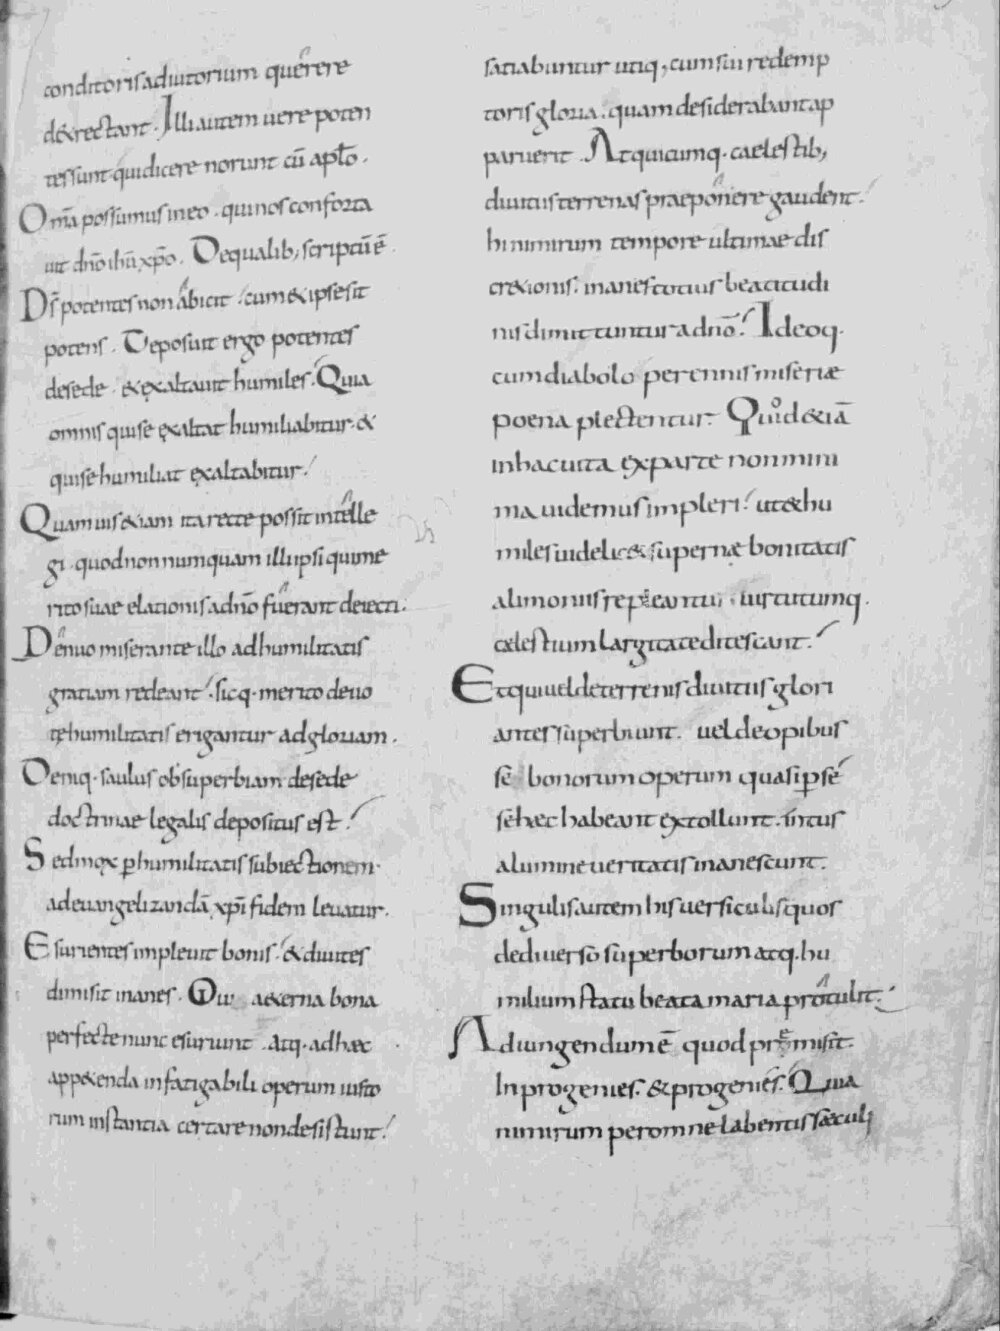 conditoris adiutorium querere
detrectant. Illi autem uere poten
tes sunt qui dicere norunt cū apło.
Oma possumus in eo. qui nos conforta
uit dno ihu xpo. De qualib; scriptū ē.
Ds potentes non abicit. cum & ipse sit
potens. Deposuit ergo potentes
de sede. & exaltauit humiles. Quia
omnis qui se exaltat humiliabitur. &
qui se humiliat exaltabitur.
Quamuis &iam ita recte possit intelle
gi. quod non numquam illi ipsi qui me
rito suae elationis a dno fuerant deiecti.
Denuo miserante illo ad humilitatis
gratiam redeant. sicq. merito deuo
te humilitatis erigantur ad gloriam.
Deniq. saulus ob superbiam de sede
doctrinae legalis depositus est.
Sed mox p humilitatis subiectionem.
ad euangelizandā xpi fidem leuatur.
Esurientes impleuit bonis. & diuites
dimisit inanes. Qui aeterna bona
perfecte nunc esuriunt. Atq. adhaec
appetenda infatigabili operum iusto
rum instantia certare non desistunt.
satiabuntur utiq; cum sui redemp
toris gloria. quam desiderabant ap
paruerit. At quicumq. caelestib;
diuitiis terrenas praeponere gaudent.
hi nimirum tempore ultimae dis
cretionis. inanes totius beatitudi
nis dimittuntur a dno. Ideoq.
cum diabolo perennis miseriae
poena plectentur. Quod &iā
in hac uita ex parte non mini
ma uidemus impleri. ut & hu
miles uidelic& supernae bonitatis
alimoniis repleantur. uirtutumq.
caelestium largitate ditescant.
Et qui uel de terrenis diuitiis glori
antes superbiunt. uel de opibus
se bonorum operum quasi p se
se haec habeant extollunt. intus
a lumine ueritatis inanescunt.
Singulis autem his uersiculis quos
de diuerso superborum atq. hu
milium statu beata maria protulit.
Adiungendum ē quod praemisit.
In progenies. & progenies. Quia
nimirum per omne labentis saeculi